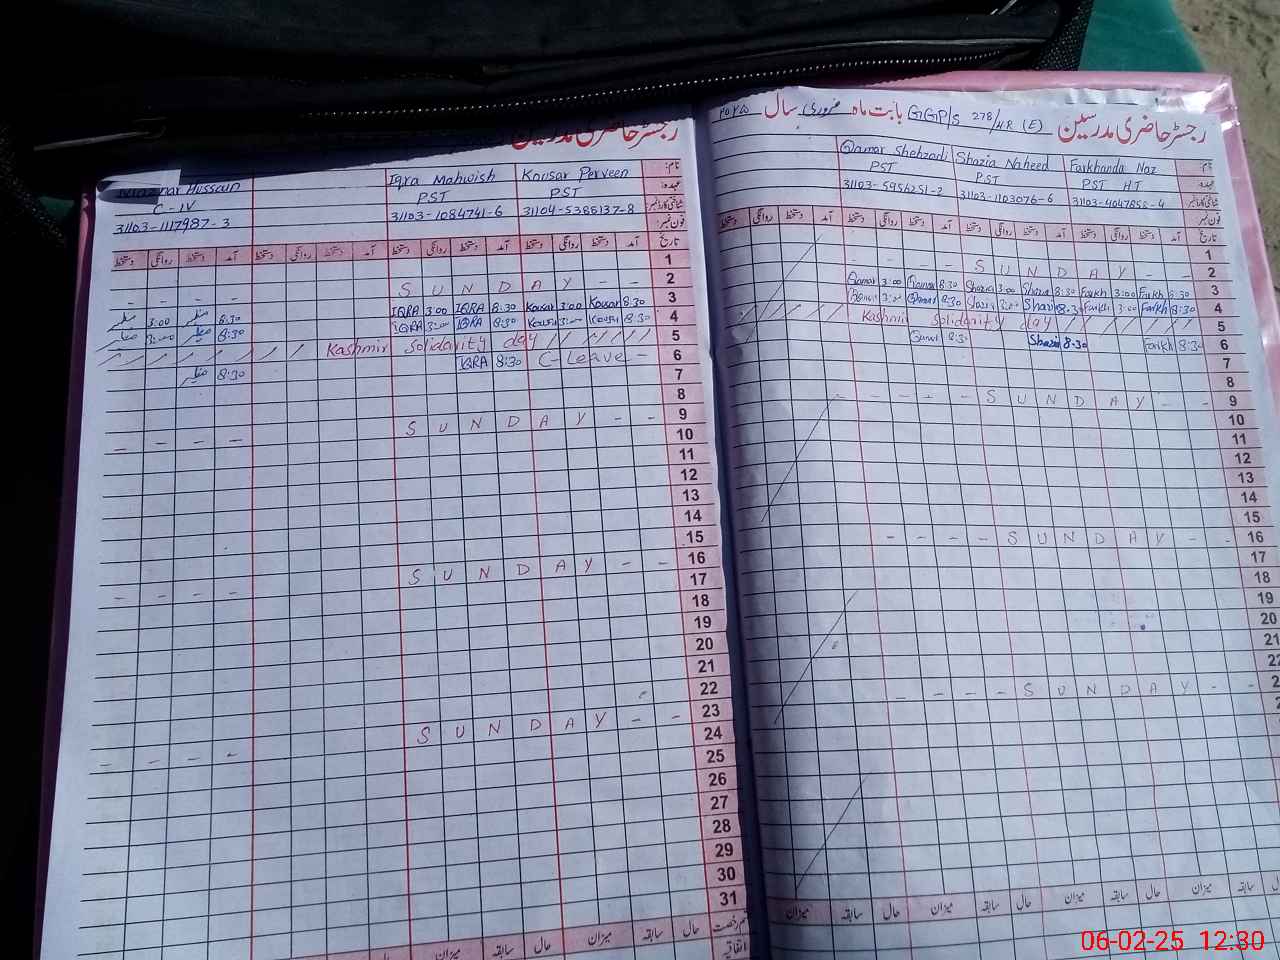 رجسٹر حاضری مدرسین GGP/S 278/HR (E) بابت ماہ فروری سال ۲۰۲۵
نام: Farkhanda Naz Shazia Naheed Qamar Shehzadi
عہدہ: PST HT PST PST
شناختی کارڈ نمبر 31103-4047858-4 31103-1103076-6 31103-5956251-2
فون نمبر
تاریخ آمد دستخط روانگی دستخط آمد دستخط روانگی دستخط آمد دستخط روانگی دستخط آمد دستخط روانگی دستخط
1
2 - - - - S U N D A Y - -
3 Qamar 3:00 Qamar 8:30 Shazia 3:00 Shazia 8:30 Farkh 3:00 Farkh 8:30
4 Qamar 3:00 Qamar 8:30 Shazia 3:00 Shazia 8:30 Farkh 3:00 Farkh 8:30
5 Kashmir Solidarity day
6 Qamar 8:30 Shazia 8:30 Farkh 8:30
7
8
9 - - - - - S U N D A Y - -
10
11
12
13
14
15
16 - - - - S U N D A Y - -
17
18
19
20
21
22
2 - - - - S U N D A Y - -
میزان سابقہ حال میزان سابقہ حال میزان سابقہ حال میزان سابقہ
رجسٹر حاضری مدرسین
نام: Kousar Perveen Iqra Mahwish Hussain
عہدہ: PST PST C-IV
شناختی کارڈ نمبر 31104-5385137-8 31103-1084741-6 31103-1117987-3
فون نمبر
تاریخ آمد دستخط روانگی دستخط آمد دستخط روانگی دستخط آمد دستخط روانگی دستخط آمد دستخط روانگی دستخط
1
2 - - - - S U N D A Y - -
3 3:00 8:30 IQRA 3:00 IQRA 8:30 Kousar 3:00 Kousar 8:30
4 3:00 8:30 IQRA 3:00 IQRA 8:30 Kousar 3:00 Kousar 8:30
5 Kashmir Solidarity day
6 8:30 IQRA 8:30 C-Leave -
7
8
9 - - - - S U N D A Y - -
10
11
12
13
14
15
16 - - - - S U N D A Y - -
17
18
19
20
21
22
23 - - - - S U N D A Y - -
24
25
26
27
28
29
30
31
قسم رخصت حال سابقہ میزان حال سابقہ میزان
اتفاقیہ
06-02-25 12:30